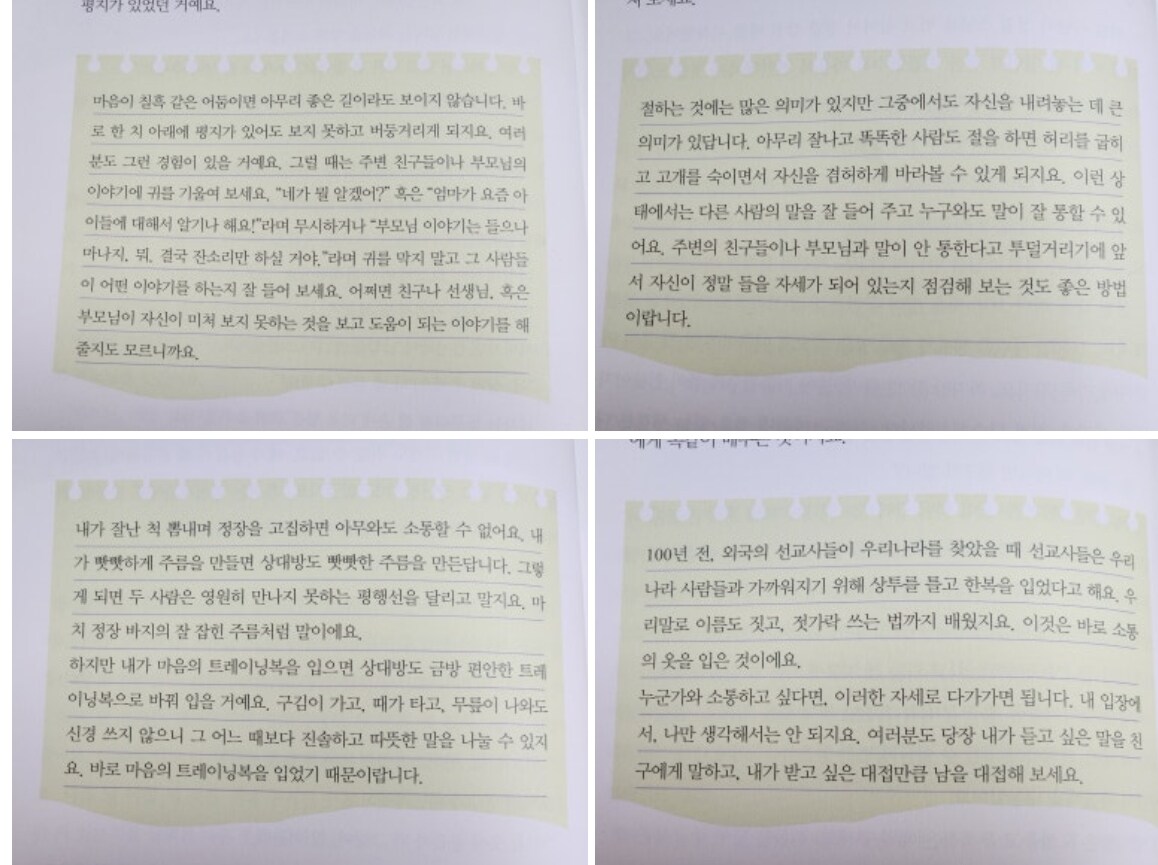 평지가 있었던 거예요.
마음이 칠흑 같은 어둠이면 아무리 좋은 길이라도 보이지 않습니다. 바
로 한 치 아래에 평지가 있어도 보지 못하고 버둥거리게 되지요. 여러
분도 그런 경험이 있을 거예요. 그럴 때는 주변 친구들이나 부모님의
이야기에 귀를 기울여 보세요. “네가 뭘 알겠어?” 혹은 “엄마가 요즘 아
이들에 대해서 알기나 해요!”라며 무시하거나 “부모님 이야기는 들으나
마나지. 뭐. 결국 잔소리만 하실 거야.”라며 귀를 막지 말고 그 사람들
이 어떤 이야기를 하는지 잘 들어 보세요. 어쩌면 친구나 선생님, 혹은
부모님이 자신이 미처 보지 못하는 것을 보고 도움이 되는 이야기를 해
줄지도 모르니까요.
절하는 것에는 많은 의미가 있지만 그중에서도 자신을 내려놓는 데 큰
의미가 있답니다. 아무리 잘나고 똑똑한 사람도 절을 하면 허리를 굽히
고 고개를 숙이면서 자신을 겸허하게 바라볼 수 있게 되지요. 이런 상
태에서는 다른 사람의 말을 잘 들어 주고 누구와도 말이 잘 통할 수 있
어요. 주변의 친구들이나 부모님과 말이 안 통한다고 투덜거리기에 앞
서 자신이 정말 들을 자세가 되어 있는지 점검해 보는 것도 좋은 방법
이랍니다.
내가 잘난 척 뽐내며 정장을 고집하면 아무와도 소통할 수 없어요. 내
가 빳빳하게 주름을 만들면 상대방도 빳빳한 주름을 만든답니다. 그렇
게 되면 두 사람은 영원히 만나지 못하는 평행선을 달리고 말지요. 마
치 정장 바지의 잘 잡힌 주름처럼 말이에요.
하지만 내가 마음의 트레이닝복을 입으면 상대방도 금방 편안한 트레
이닝복으로 바꿔 입을 거예요. 구김이 가고, 때가 타고, 무릎이 나와도
신경 쓰지 않으니 그 어느 때보다 진솔하고 따뜻한 말을 나눌 수 있지
요. 바로 마음의 트레이닝복을 입었기 때문이랍니다.
100년 전, 외국의 선교사들이 우리나라를 찾았을 때 선교사들은 우리
나라 사람들과 가까워지기 위해 상투를 틀고 한복을 입었다고 해요. 우
리말로 이름도 짓고, 젓가락 쓰는 법까지 배웠지요. 이것은 바로 소통
의 옷을 입은 것이에요.
누군가와 소통하고 싶다면, 이러한 자세로 다가가면 됩니다. 내 입장에
서, 나만 생각해서는 안 되지요. 여러분도 당장 내가 듣고 싶은 말을 친
구에게 말하고, 내가 받고 싶은 대접만큼 남을 대접해 보세요.